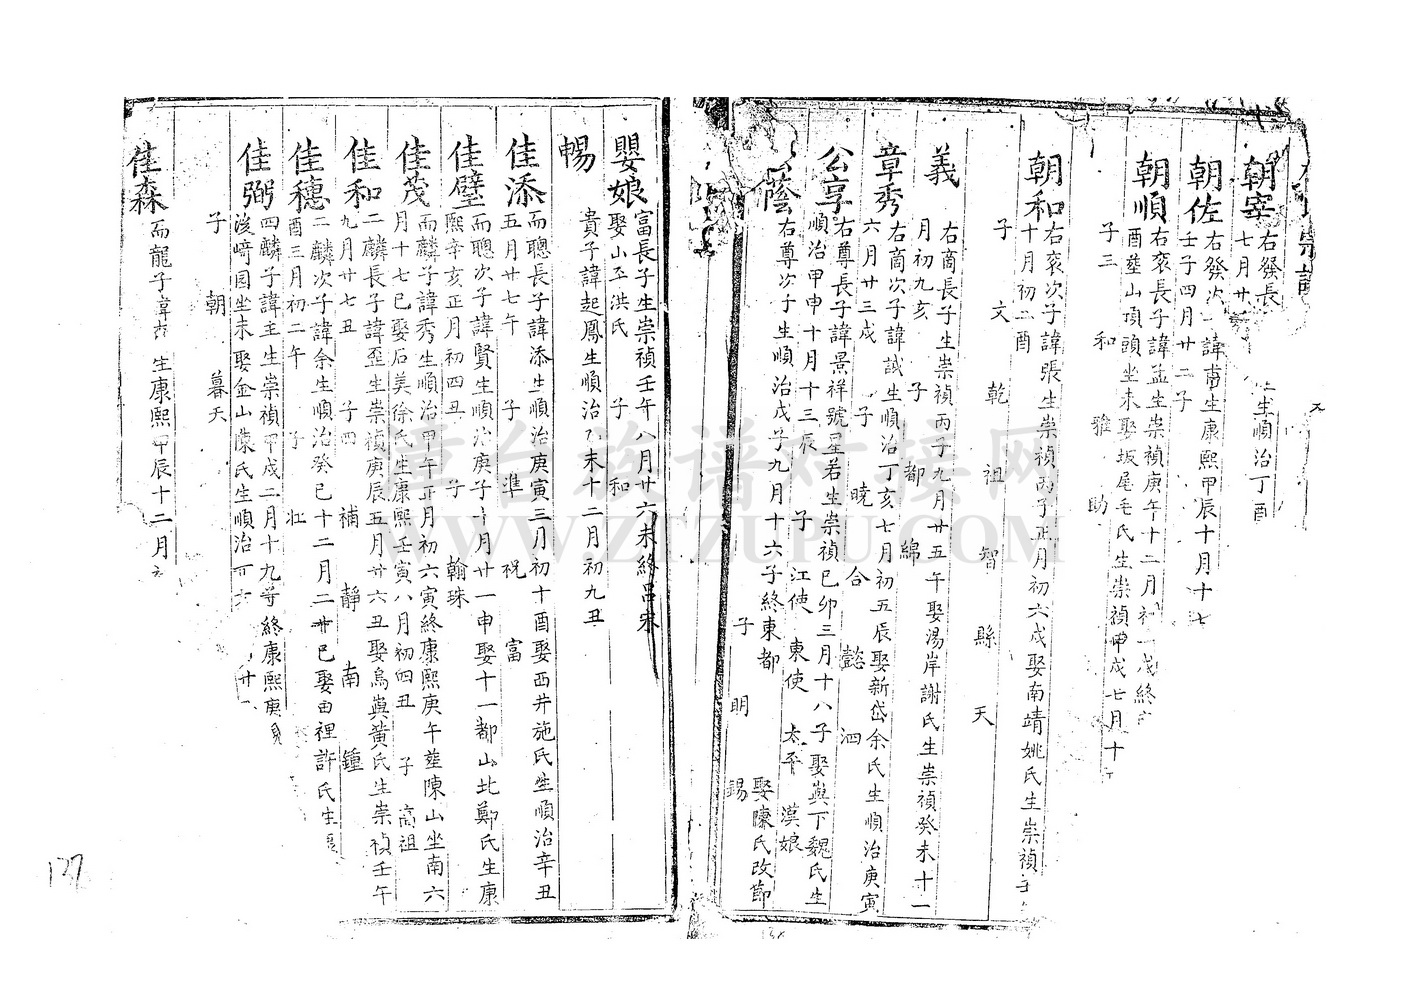 朝宰
右發長
七月廿
生順治丁酉
朝佐
右發次
諱
生康熙甲辰十月十七
壬子四月廿二
子
朝順
右袞長子諱孟生崇禎庚午十二月初一戌終
酉塟山頂頭坐未娶坂尾毛氏生崇禎甲戌七月十
子三 和 雅 助
朝和
右袞次子諱張生崇禎丙子正月初六戌娶南靖姚氏生崇禎
十月初二酉
子 文 乾 祖 智 縣 天
義
右商長子生崇禎丙子九月廿五午娶湯岸謝氏生崇禎癸未十一
月初九亥 子 都 綿
章秀
右商次子諱誠生順治丁亥七月初五辰娶新岱余氏生順治庚寅
六月廿三戌 子 曉 合 懿 泗
公享
右尊長子諱景祥號星若生崇禎己卯三月十八子娶與下魏氏生
順治甲申十月十三辰 子 江使 東使 太平 漢娘
蔭
右尊次子生順治戊子九月十六子終東都 娶陳氏改節
子 明 錫
嬰娘
富長子生崇禎壬午八月廿六未終呂宋
娶山平洪氏 子 和
暢
貴子諱起鳳生順治乙未十二月初九丑
佳添
而聰長子諱添生順治庚寅三月初十酉娶西井施氏生順治辛丑
五月廿七午 子 準 祝 富
佳璧
而聰次子諱賢生順治庚子十月廿一申娶十一都山北鄭氏生康
熙辛亥正月初四丑 子 翰珠
佳茂
而麟子諱秀生順治甲午正月初六寅終康熙庚午塟陳山坐南六
月十七巳娶后美徐氏生康熙壬寅八月初四丑 子 高祖
佳和
二麟長子諱歪生崇禎庚辰五月廿六丑娶烏與黃氏生崇禎壬午
九月廿七丑 子四 補 靜 南 鍾
佳穗
二麟次子諱余生順治癸巳十二月二廿巳娶由裡許氏生
酉三月初二午 子 壯
佳弼
四麟子諱主生崇禎甲戌二月十九寺終康熙庚
後崎园坐未娶金山陳氏生順治
廿
子 朝 暮天
佳森
而龍子諱
生康熙甲辰十二月
137
臺台族谱对接网
WWW.ZTZUPU.COM